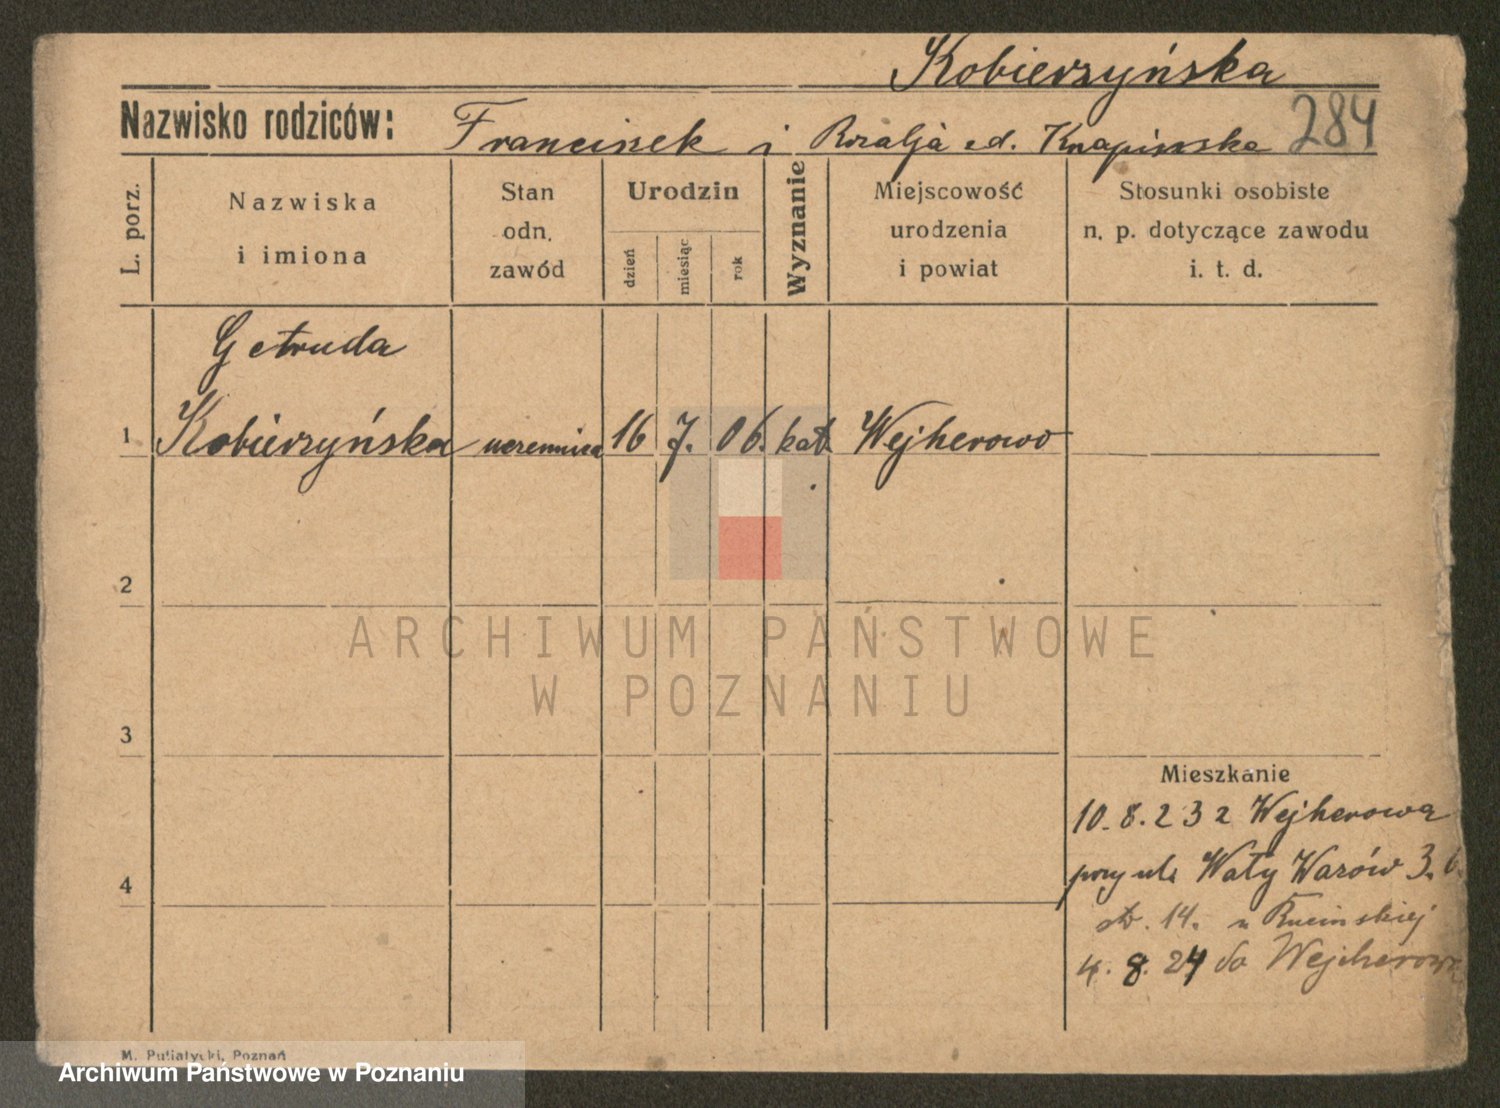 Kobierzyńska
Nazwisko rodziców: Franciszek i Rozalja zd. Knapińska 284
L. porz.
Nazwiska
i imiona
Stan
odn.
zawód
Urodzin
dzień
miesiąc
rok
Wyznanie
Miejscowość
urodzenia
i powiat
Stosunki osobiste
n. p. dotyczące zawodu
i. t. d.
Getruda
1 Kobierzyńska uczennica 16 7. 06. kat. Wejherowo
2
ARCHIWUM PAŃSTWOWE
W POZNANIU
3
Mieszkanie
10. 8. 23 z Wejherowa
przy ul. Wały Wazów 3.
4
14. u
4. 8. 24 do Wejherowa
M. Putiatycki, Poznań
Archiwum Państwowe w Poznaniu